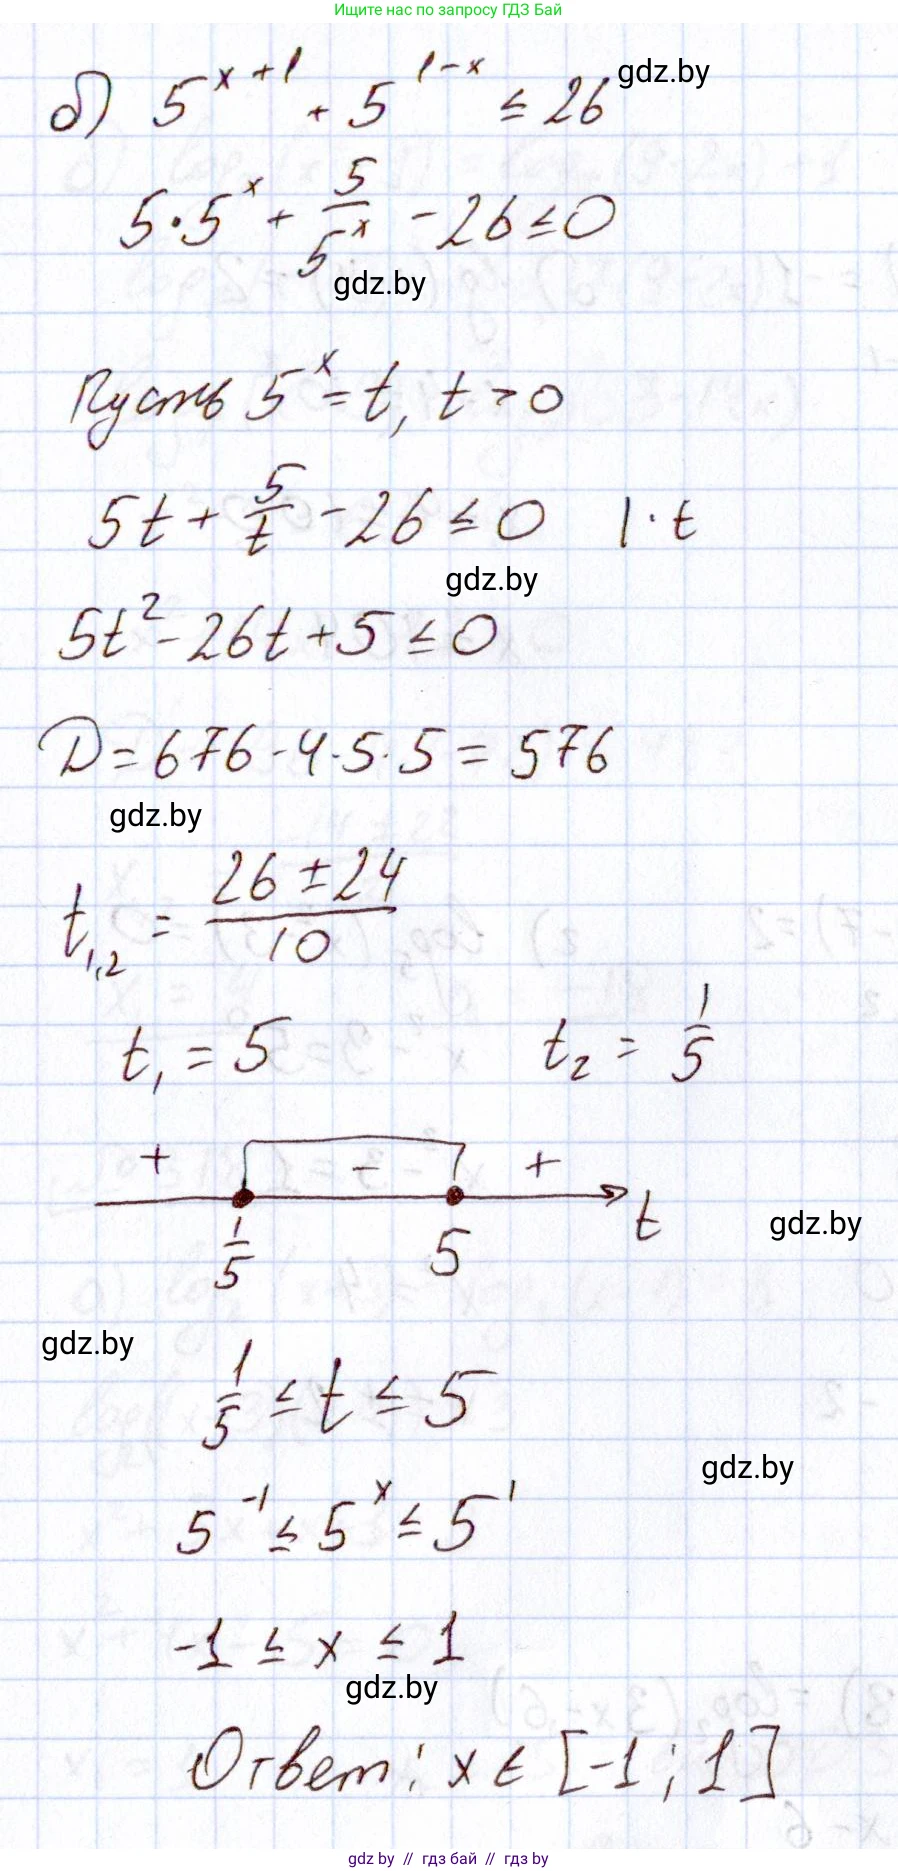 Ищите нас по запросу ГДЗ Бай
б) 5^(x+1) + 5^(1-x) ≤ 26
gdz.by
5·5^x + 5/5^x - 26 ≤ 0
gdz.by
Пусть 5^x = t, t > 0
5t + 5/t - 26 ≤ 0 | · t
gdz.by
5t² - 26t + 5 ≤ 0
D = 676 - 4·5·5 = 576
gdz.by
t₁,₂ = (26 ± 24)/10
t₁ = 5 t₂ = 1/5
+ - +
1/5 5 t
gdz.by
gdz.by
1/5 ≤ t ≤ 5
gdz.by
5^(-1) ≤ 5^x ≤ 5^1
-1 ≤ x ≤ 1
gdz.by
Ответ: x ∈ [-1; 1]
gdz by // гдз бай // гдз by